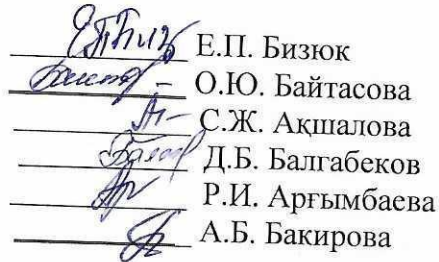 Е.П. Бизюк
О.Ю. Байтасова
С.Ж. Ақшалова
Д.Б. Балгабеков
Р.И. Арғымбаева
А.Б. Бакирова